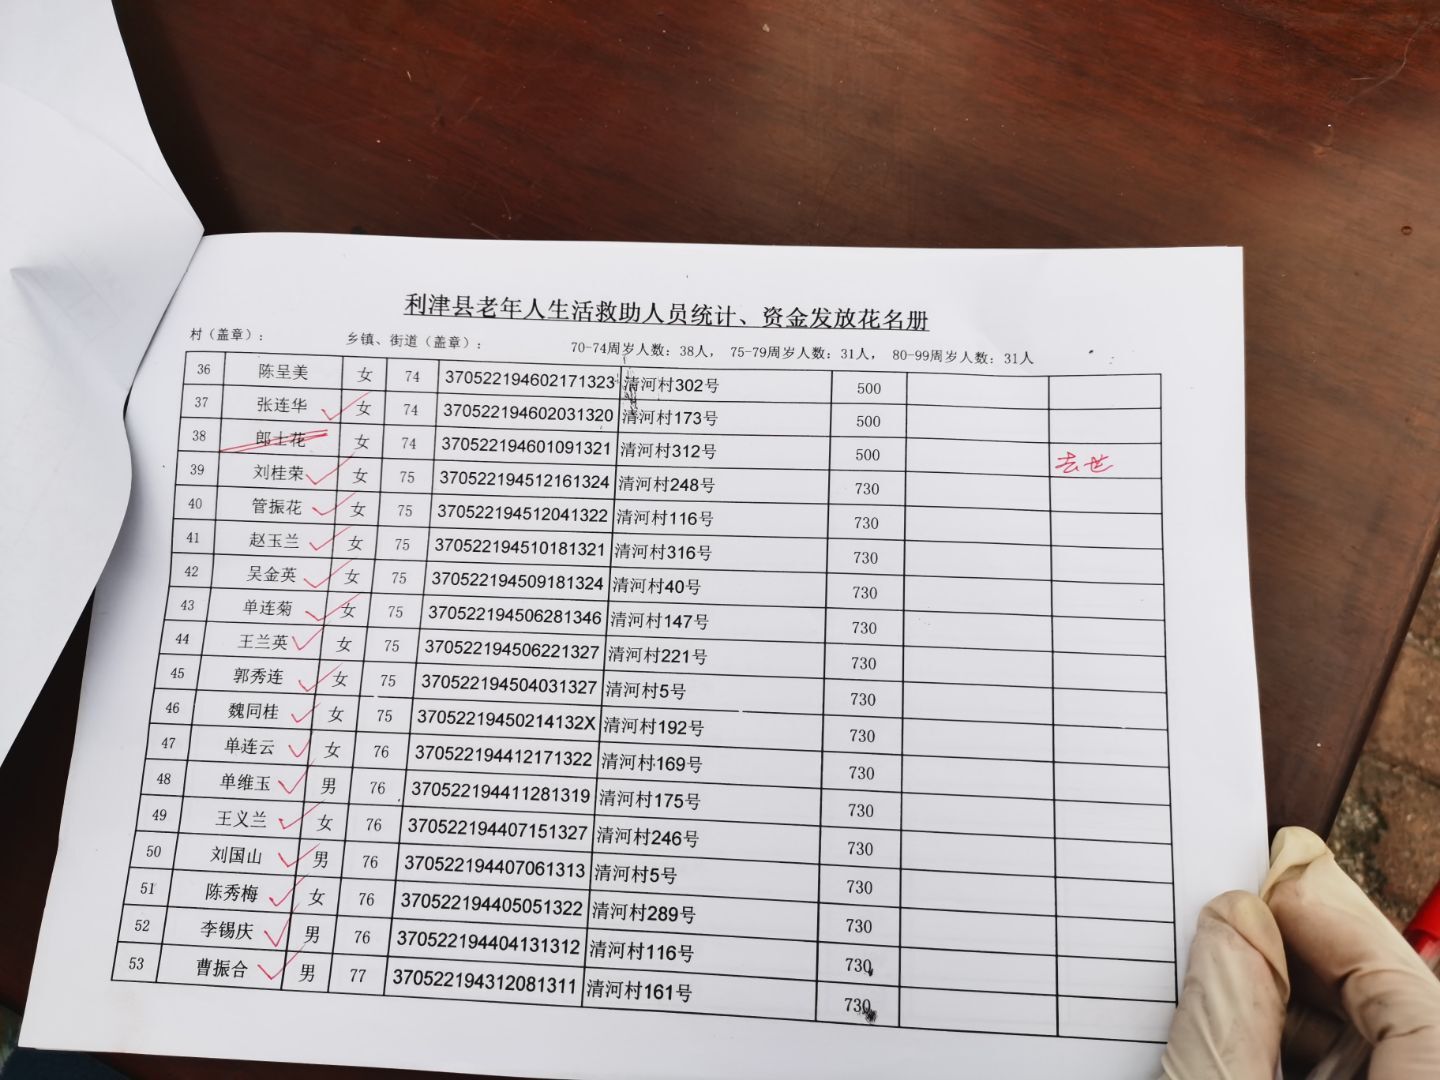 利津县老年人生活救助人员统计、资金发放花名册
村（盖章）： 乡镇、街道（盖章）： 70-74周岁人数：38人， 75-79周岁人数：31人， 80-99周岁人数：31人
36 陈呈美 女 74 370522194602171323 清河村302号 500
37 张连华 女 74 370522194602031320 清河村173号 500
38 郎士花 女 74 370522194601091321 清河村312号 500 去世
39 刘桂荣 女 75 370522194512161324 清河村248号 730
40 管振花 女 75 370522194512041322 清河村116号 730
41 赵玉兰 女 75 370522194510181321 清河村316号 730
42 吴金英 女 75 370522194509181324 清河村40号 730
43 单连菊 女 75 370522194506281346 清河村147号 730
44 王兰英 女 75 370522194506221327 清河村221号 730
45 郭秀连 女 75 370522194504031327 清河村5号 730
46 魏同桂 女 75 37052219450214132X 清河村192号 730
47 单连云 女 76 370522194412171322 清河村169号 730
48 单维玉 男 76 370522194411281319 清河村175号 730
49 王义兰 女 76 370522194407151327 清河村246号 730
50 刘国山 男 76 370522194407061313 清河村5号 730
51 陈秀梅 女 76 370522194405051322 清河村289号 730
52 李锡庆 男 76 370522194404131312 清河村116号 730
53 曹振合 男 77 370522194312081311 清河村161号 730